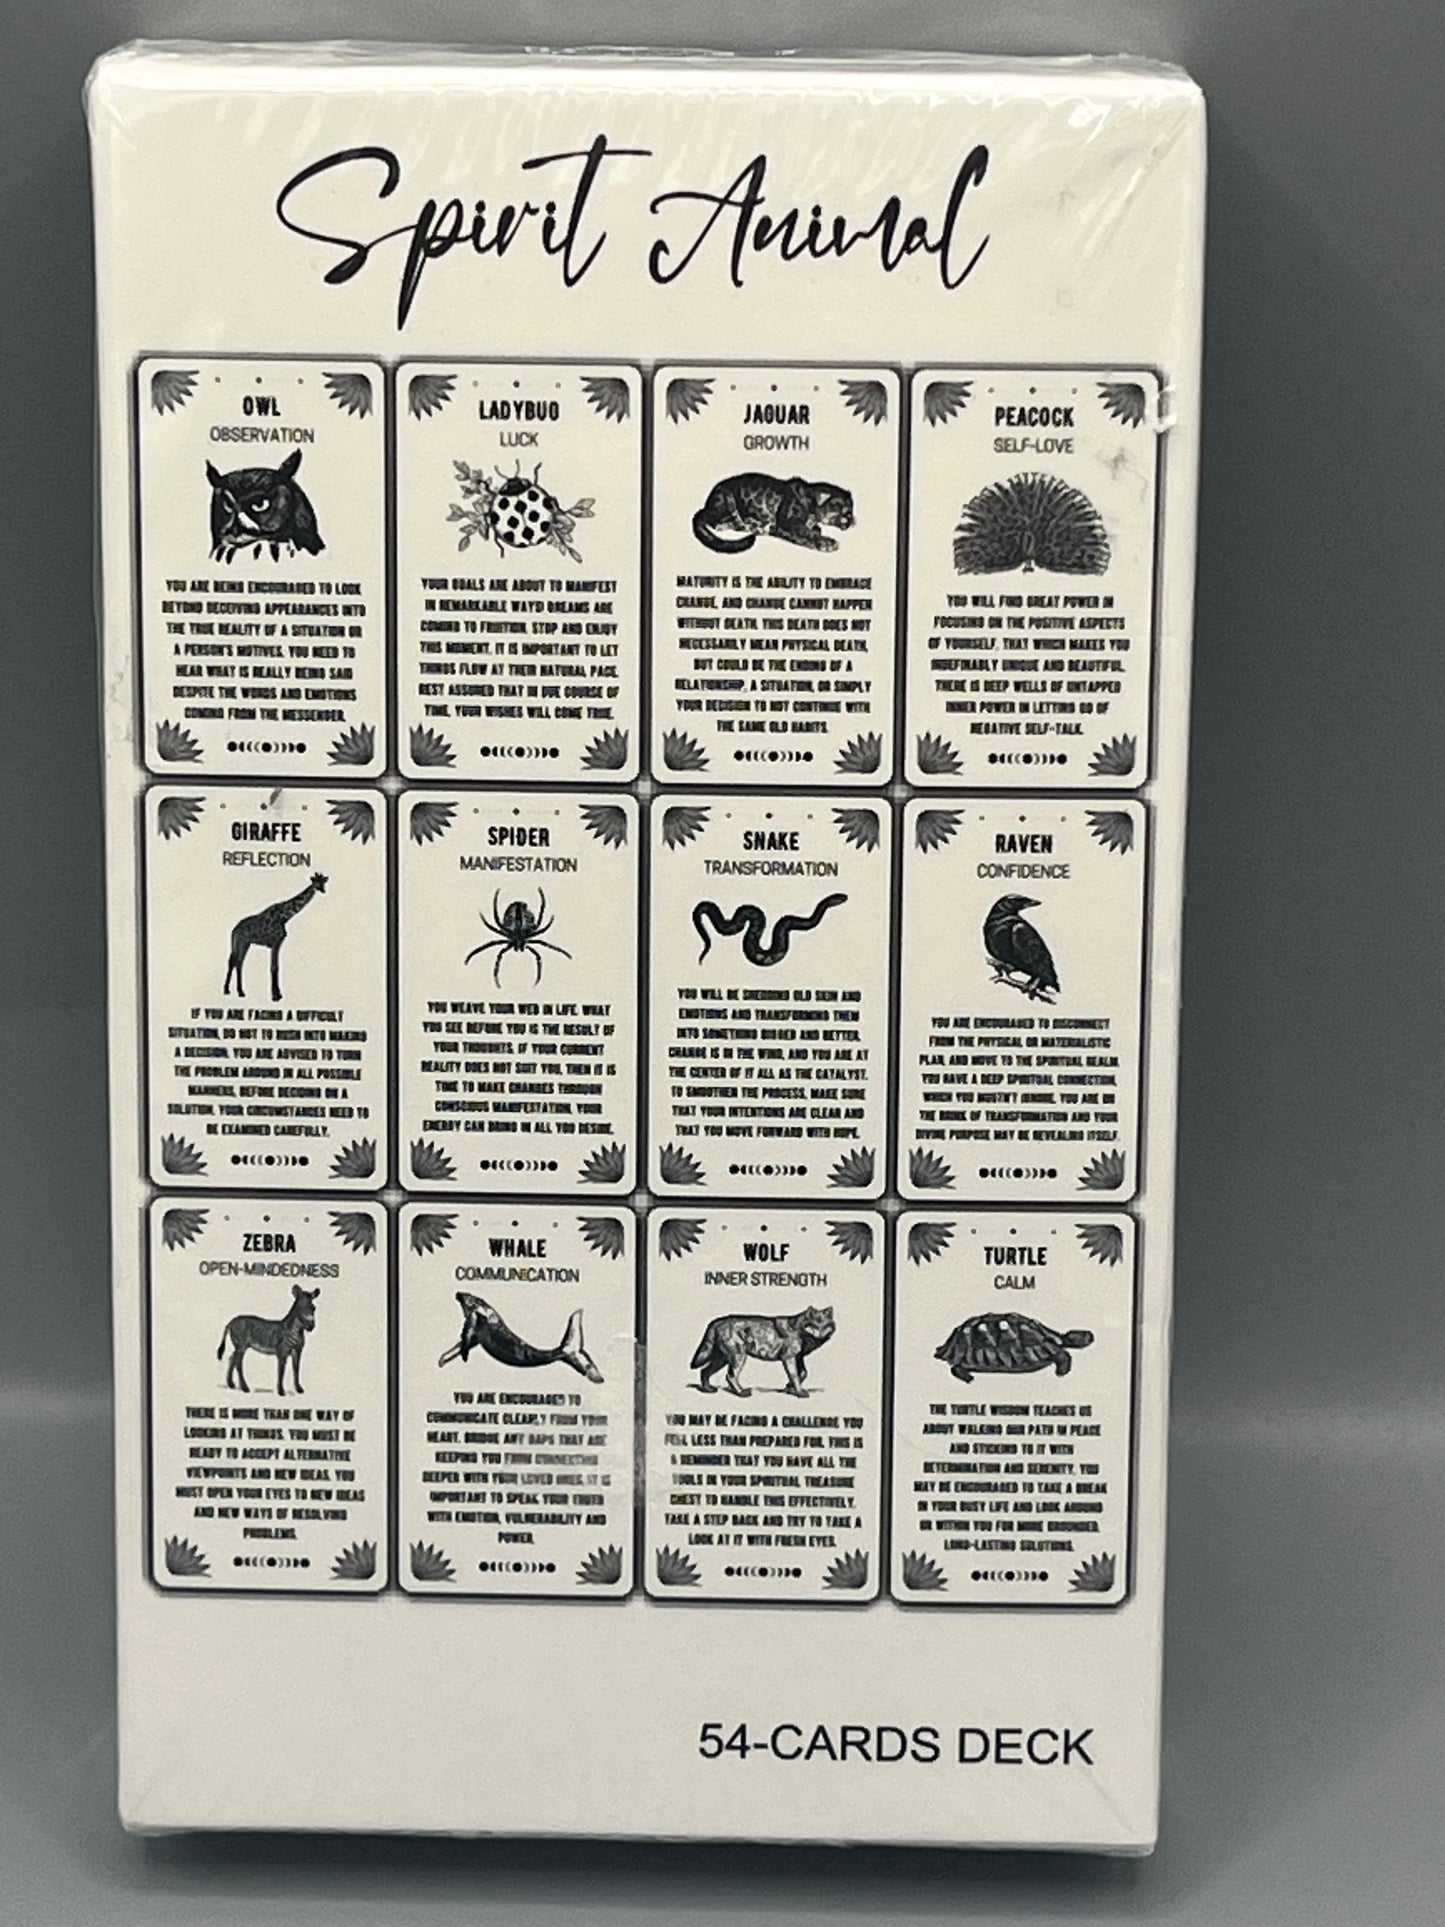 Spirit Animal
OWL
OBSERVATION
YOU ARE BEING ENCOURAGED TO LOOK
BEYOND DECEIVING APPEARANCES INTO
THE TRUE REALITY OF A SITUATION OR
A PERSON'S MOTIVES. YOU NEED TO
HEAR WHAT IS REALLY BEING SAID
DESPITE THE WORDS AND EMOTIONS
COMING FROM THE MESSENGER.
LADYBUG
LUCK
YOUR GOALS ARE ABOUT TO MANIFEST
IN REMARKABLE WAYS! DREAMS ARE
COMING TO FRUITION. STOP AND ENJOY
THIS MOMENT. IT IS IMPORTANT TO LET
THINGS FLOW AT THEIR NATURAL PACE.
REST ASSURED THAT IN DUE COURSE OF
TIME, YOUR WISHES WILL COME TRUE.
JAGUAR
GROWTH
MATURITY IS THE ABILITY TO EMBRACE
CHANGE, AND CHANGE CANNOT HAPPEN
WITHOUT DEATH. THIS DEATH DOES NOT
NECESSARILY MEAN PHYSICAL DEATH,
BUT COULD BE THE ENDING OF A
RELATIONSHIP, A SITUATION, OR SIMPLY
YOUR DECISION TO NOT CONTINUE WITH
THE SAME OLD HABITS.
PEACOCK
SELF-LOVE
YOU WILL FIND GREAT POWER IN
FOCUSING ON THE POSITIVE ASPECTS
OF YOURSELF, THAT WHICH MAKES YOU
INDEFINABLY UNIQUE AND BEAUTIFUL.
THERE IS DEEP WELLS OF UNTAPPED
INNER POWER IN LETTING GO OF
NEGATIVE SELF-TALK.
GIRAFFE
REFLECTION
IF YOU ARE FACING A DIFFICULT
SITUATION, DO NOT TO RUSH INTO MAKING
A DECISION. YOU ARE ADVISED TO TURN
THE PROBLEM AROUND IN ALL POSSIBLE
MANNERS, BEFORE DECIDING ON A
SOLUTION. YOUR CIRCUMSTANCES NEED TO
BE EXAMINED CAREFULLY.
SPIDER
MANIFESTATION
YOU WEAVE YOUR WEB IN LIFE. WHAT
YOU SEE BEFORE YOU IS THE RESULT OF
YOUR THOUGHTS. IF YOUR CURRENT
REALITY DOES NOT SUIT YOU, THEN IT IS
TIME TO MAKE CHANGES THROUGH
CONSCIOUS MANIFESTATION. YOUR
ENERGY CAN BRING IN ALL YOU DESIRE.
SNAKE
TRANSFORMATION
YOU WILL BE SHEDDING OLD SKIN AND
EMOTIONS AND TRANSFORMING THEM
INTO SOMETHING BIGGER AND BETTER.
CHANGE IS IN THE WIND, AND YOU ARE AT
THE CENTER OF IT ALL AS THE CATALYST.
TO SMOOTHEN THE PROCESS, MAKE SURE
THAT YOUR INTENTIONS ARE CLEAR AND
THAT YOU MOVE FORWARD WITH HOPE.
RAVEN
CONFIDENCE
YOU ARE ENCOURAGED TO DISCONNECT
FROM THE PHYSICAL OR MATERIALISTIC
PLAN, AND MOVE TO THE SPIRITUAL REALM.
YOU HAVE A DEEP SPIRITUAL CONNECTION,
WHICH YOU MUSTN'T IGNORE. YOU ARE ON
THE BRINK OF TRANSFORMATION AND YOUR
DIVINE PURPOSE MAY BE REVEALING ITSELF.
ZEBRA
OPEN-MINDEDNESS
THERE IS MORE THAN ONE WAY OF
LOOKING AT THINGS. YOU MUST BE
READY TO ACCEPT ALTERNATIVE
VIEWPOINTS AND NEW IDEAS. YOU
MUST OPEN YOUR EYES TO NEW IDEAS
AND NEW WAYS OF RESOLVING
PROBLEMS.
WHALE
COMMUNICATION
YOU ARE ENCOURAGED TO
COMMUNICATE CLEARLY FROM YOUR
HEART. BRIDGE ANY GAPS THAT ARE
KEEPING YOU FROM CONNECTING
DEEPER WITH YOUR LOVED ONES. IT IS
IMPORTANT TO SPEAK YOUR TRUTH
WITH EMOTION, VULNERABILITY AND
POWER.
WOLF
INNER STRENGTH
YOU MAY BE FACING A CHALLENGE YOU
FEEL LESS THAN PREPARED FOR. THIS IS
A REMINDER THAT YOU HAVE ALL THE
TOOLS IN YOUR SPIRITUAL TREASURE
CHEST TO HANDLE THIS EFFECTIVELY.
TAKE A STEP BACK AND TRY TO TAKE A
LOOK AT IT WITH FRESH EYES.
TURTLE
CALM
THE TURTLE WISDOM TEACHES US
ABOUT WALKING OUR PATH IN PEACE
AND STICKING TO IT WITH
DETERMINATION AND SERENITY. YOU
MAY BE ENCOURAGED TO TAKE A BREAK
IN YOUR BUSY LIFE AND LOOK AROUND
OR WITHIN YOU FOR MORE GROUNDED,
LONG-LASTING SOLUTIONS.
54-CARDS DECK